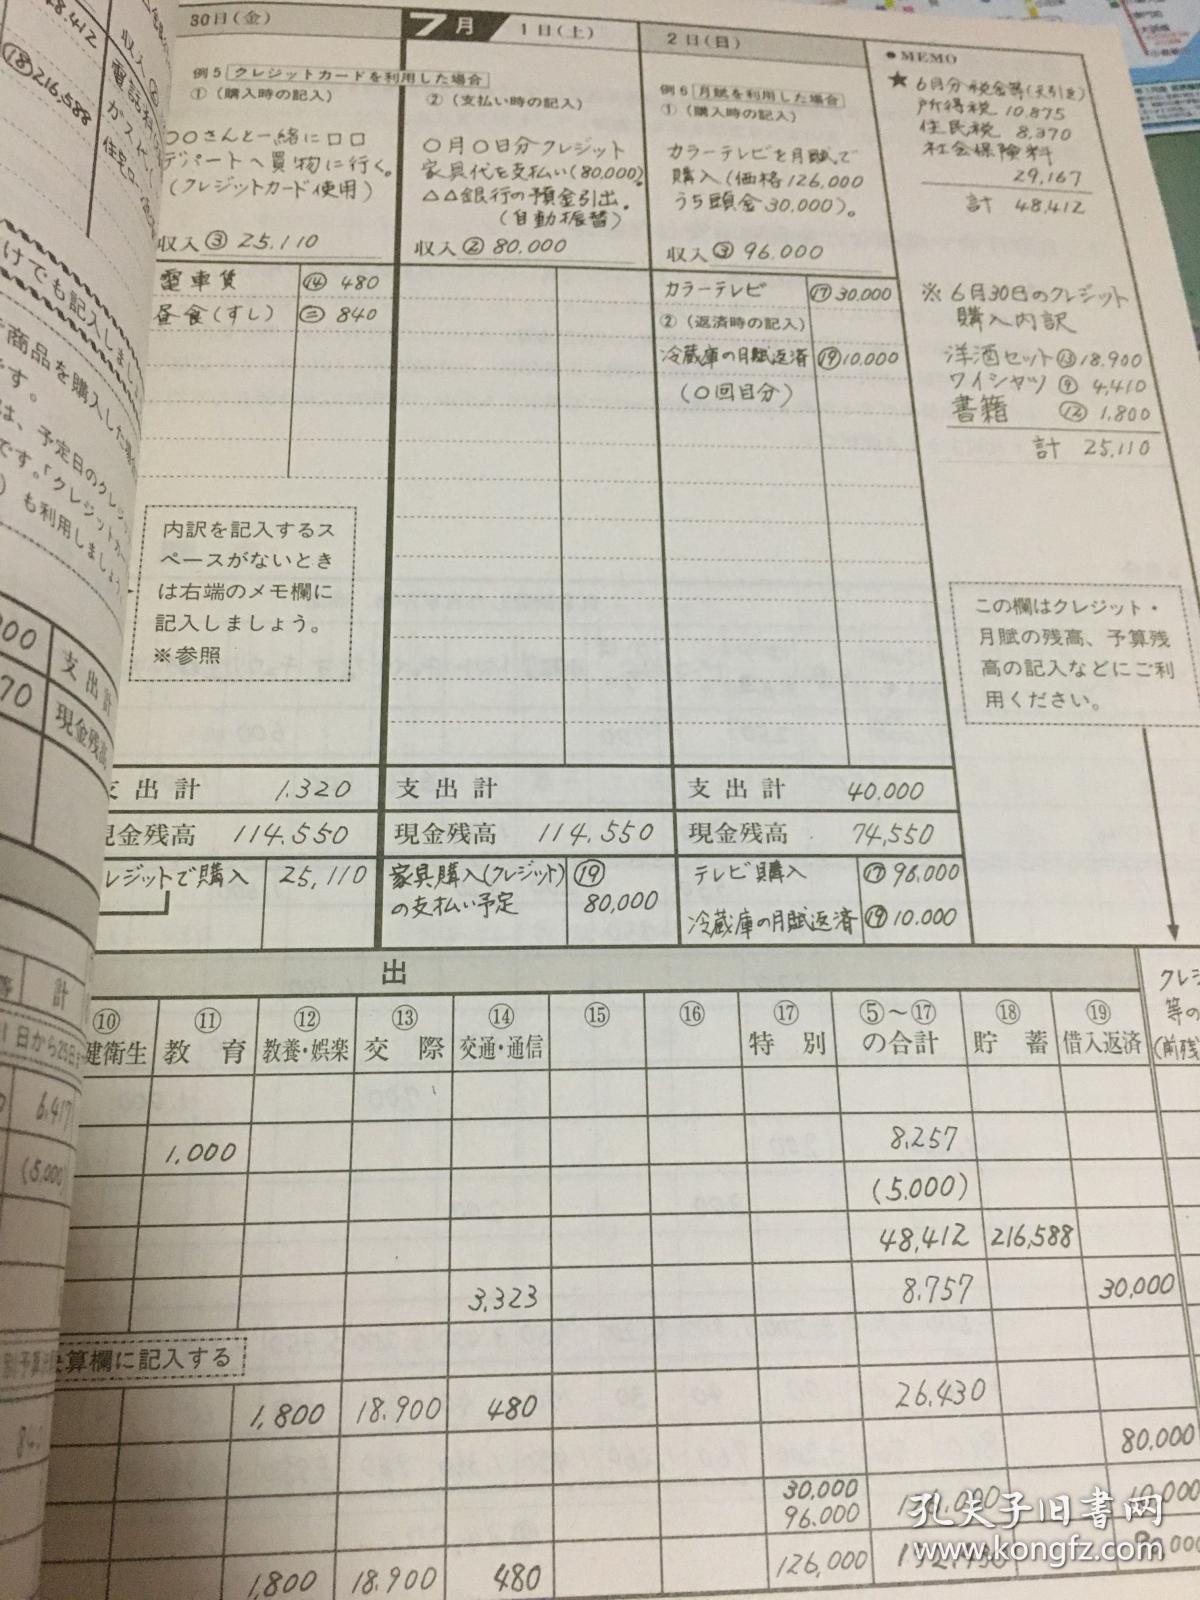 30日(金)
7月
1日(土)
2日(日)
●MEMO
例5 クレジットカードを利用した場合
①(購入時の記入)
○○さんと一緒に□□
デパートへ買物に行く。
(クレジットカード使用)
収入 ③ 25,110
電車賃 ⑭ 480
昼食(すし) ㊂ 840
内訳を記入するス
ペースがないとき
は右端のメモ欄に
記入しましょう。
※参照
支出計 1,320
現金残高 114,550
レジットで購入 25,110
②(支払い時の記入)
○月○日分クレジット
家具代を支払い(80,000)。
△△銀行の預金引出.
(自動振替)
収入 ② 80,000
支出計
現金残高 114,550
家具購入(クレジット) ⑲
の支払い予定 80,000
例6 月賦を利用した場合
①(購入時の記入)
カラーテレビを月賦で
購入(価格126,000
うち頭金30,000)。
収入 ③ 96,000
カラーテレビ ⑰ 30,000
②(返済時の記入)
冷蔵庫の月賦返済 ⑲ 10,000
(○回目分)
支出計 40,000
現金残高 74,550
テレビ購入 ⑰ 96,000
冷蔵庫の月賦返済 ⑲ 10,000
★ 6月分税金等(天引き)
所得税 10,875
住民税 8,370
社会保険料
29,167
計 48,412
※ 6月30日のクレジット
購入内訳
洋酒セット ⑬ 18,900
ワイシャツ ⑨ 4,410
書籍 ⑫ 1,800
計 25,110
この欄はクレジット・
月賦の残高、予算残
高の記入などにご利
用ください。
⑱216,588
けでも記入しまし
商品を購入した場合
です。
は、予定日のクレジッ
です。「クレジットカー
)も利用しましょう
000 支出計
70 現金残高
出
計
⑩ ⑪ ⑫ ⑬ ⑭ ⑮ ⑯ ⑰ ⑤~⑰ ⑱ ⑲
健衛生 教育 教養・娯楽 交際 交通・通信 特別 の合計 貯蓄 借入返済
クレジ
等の
(前残
日から25日
6,417
1,000 8,257
(5,000) (5,000)
48,412 216,588
3,323 8,757 30,000
算欄に記入する
1,800 18,900 480 26,430
80,000
30,000
96,000 10,000
1,800 18,900 480 126,000
孔夫子旧书网
www.kongfz.com